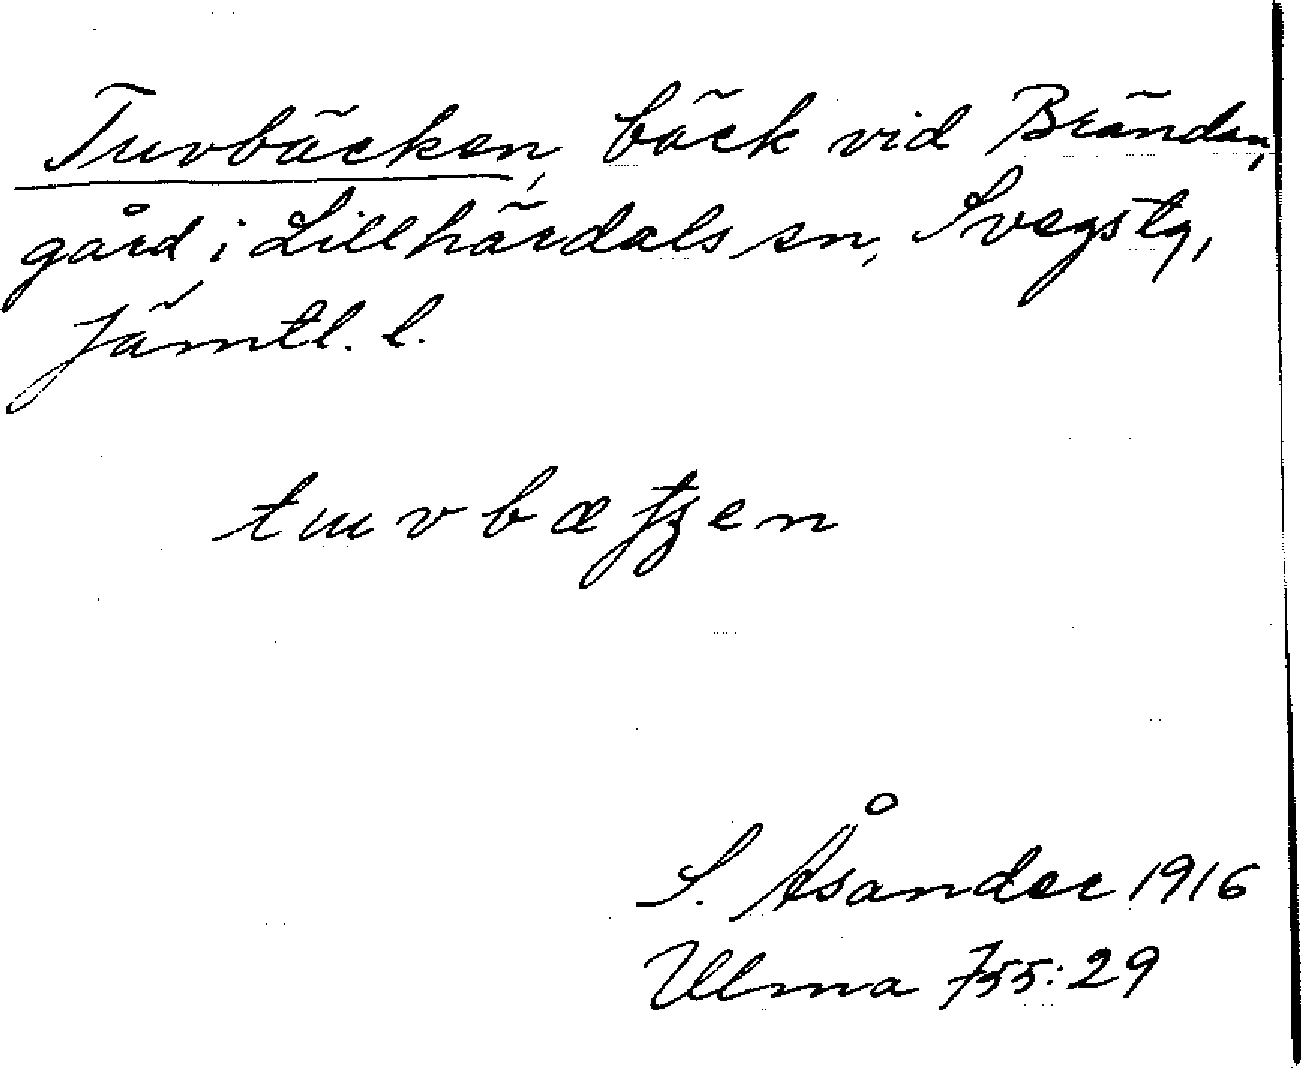 Tuvbäcken, bäck vid Brändan,
gård i Lillhärdals sn, Svegs tg,
Jämtl. l.
S. Åsander 1916
Ulma 755:29